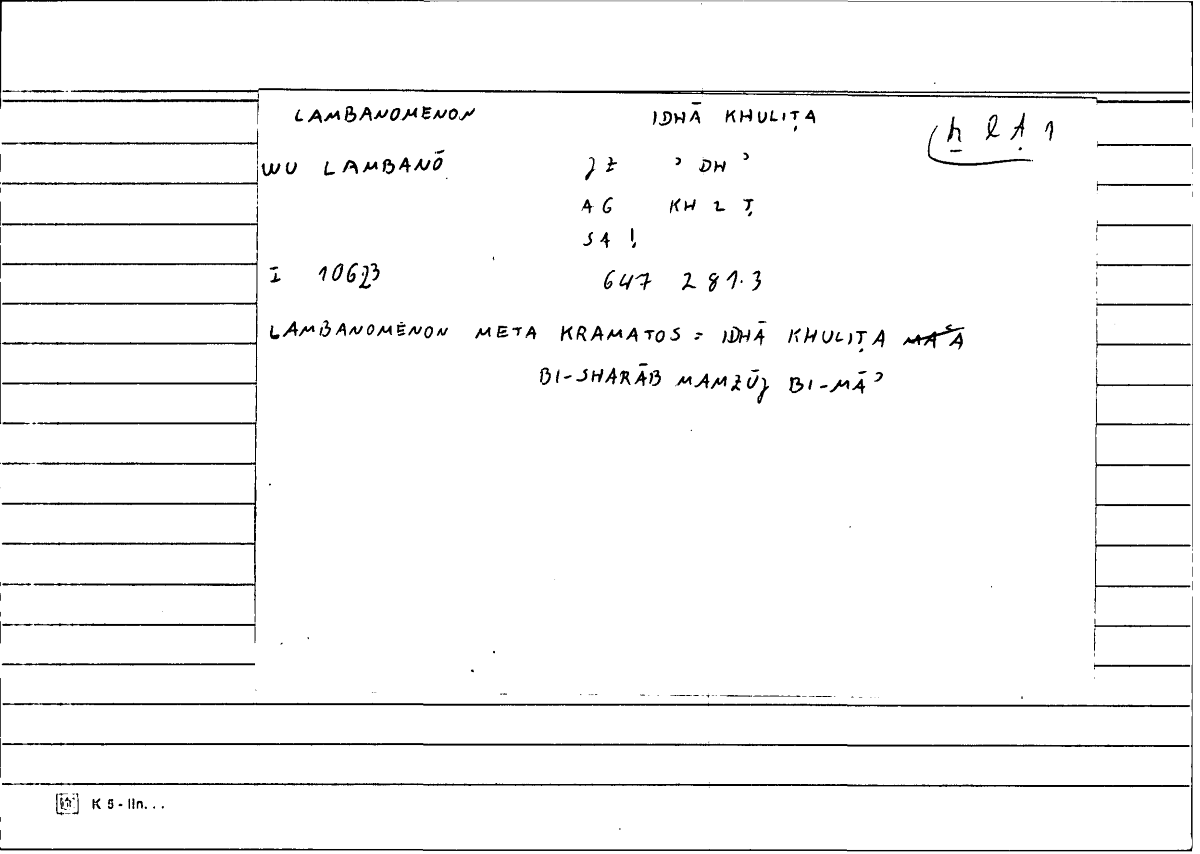 LAMBANOMENON IDHĀ KHULIṬA
ẖ l ṭ 1
WU LAMBANŌ JZ ʾ DH ʾ
AG KH L Ṭ
SA !
I 10623 647 281.3
LAMBANOMENON META KRAMATOS = IDHĀ KHULIṬA MAʿA
BI-SHARĀB MAMZŪJ BI-MĀʾ
K 5 - lin...